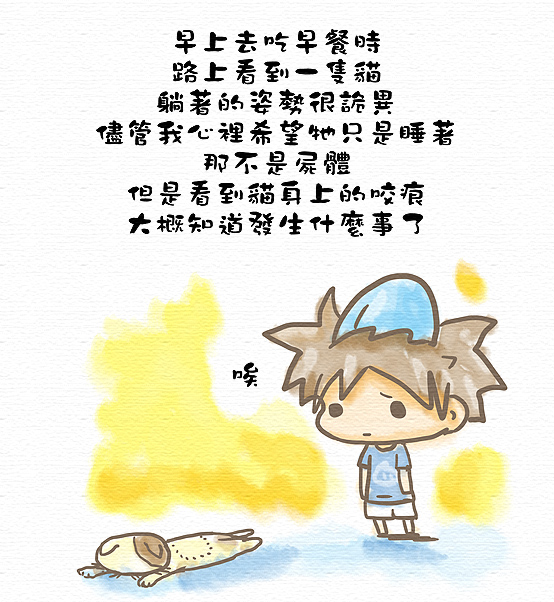 早上去吃早餐時
路上看到一隻貓
躺著的姿勢很詭異
儘管我心裡希望牠只是睡著
那不是屍體
但是看到貓身上的咬痕
大概知道發生什麼事了
唉